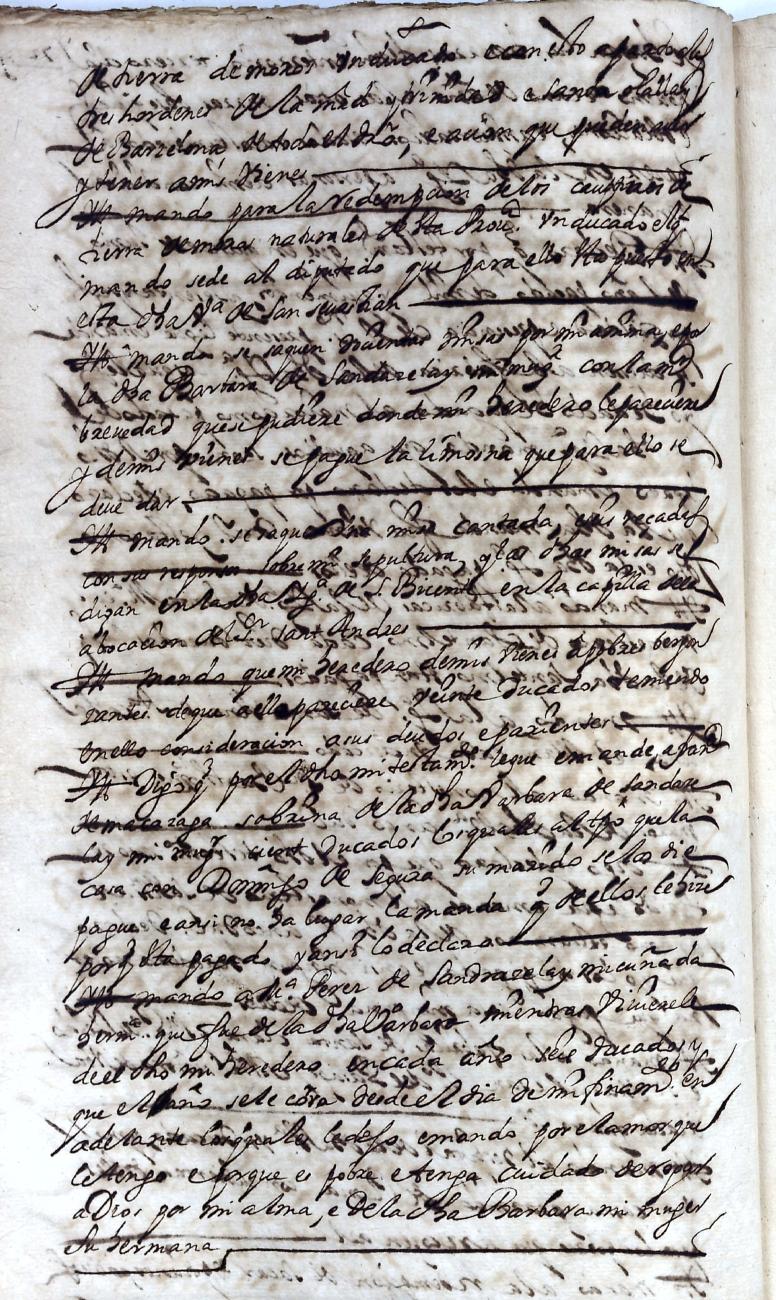 de tierra de moros Un ducado e con esto aparto a las
tres hordenes de la m̃d y trinidad e santa olalla
de Barzelona de todo el drõ, e action que pueden aver
y tener a mis vienes
Yt̃ mando para la Redempcion de los cautibos de
tierra de moros naturales desta Prouª. Un ducado el q̃
mando se de al diputado que para ello sta puesto en
esta dha Vª de San sevastian
Yt̃ mando se saquen duçientas misas por mi anima, e por
la dha Barbara de Sandarelay mi mugʳ con la mʳ
brevedad que se pudiere donde mi heredero le pareçiere
y de mis vienes se pague la limosna que para ello se
deve dar
Yt̃ mando se saque Una misa cantada, e sus recades
con sus responsos sobre mi sepultura, y las dhas misas se
digan en la dha Ygª de S. Biçente en la capilla de la
abocaçion del Sʳ Sant Andres
Yt̃ mando que mi heredero de mis vienes de a pobres bergon
zantes de que a el le pareçiere veinte ducados teniendo
en ello consideracion a sus deudos e parientes
Yt̃ Digo q̃ por el dho mi testamᵗᵒ legue e mande, a
de matazaga sobrina de la dha Barbara de sandare
lay mi mugʳ cient ducados los quales al tpõ que la
case con Domingo de Segura su marido se los di e
pague e ansi no ha lugar la manda q̃ de ellos le hize
porq̃ sta pagado y ansi lo declaro
Yt̃ mando a Mª Perez de Sandrarelay mi cuñada
hermª que fue de la dha Barbara mientras viviere le
de el dho mi heredero en cada año seis ducados y
que el año se le corra desde el dia de mi finamᵗᵒ en
adelante los quales le dexo e mando por el amor que
le tengo e porque es pobre e tenga cuidado de rogar
a Dios por mi alma, e de la dha Barbara mi muger
su hermana